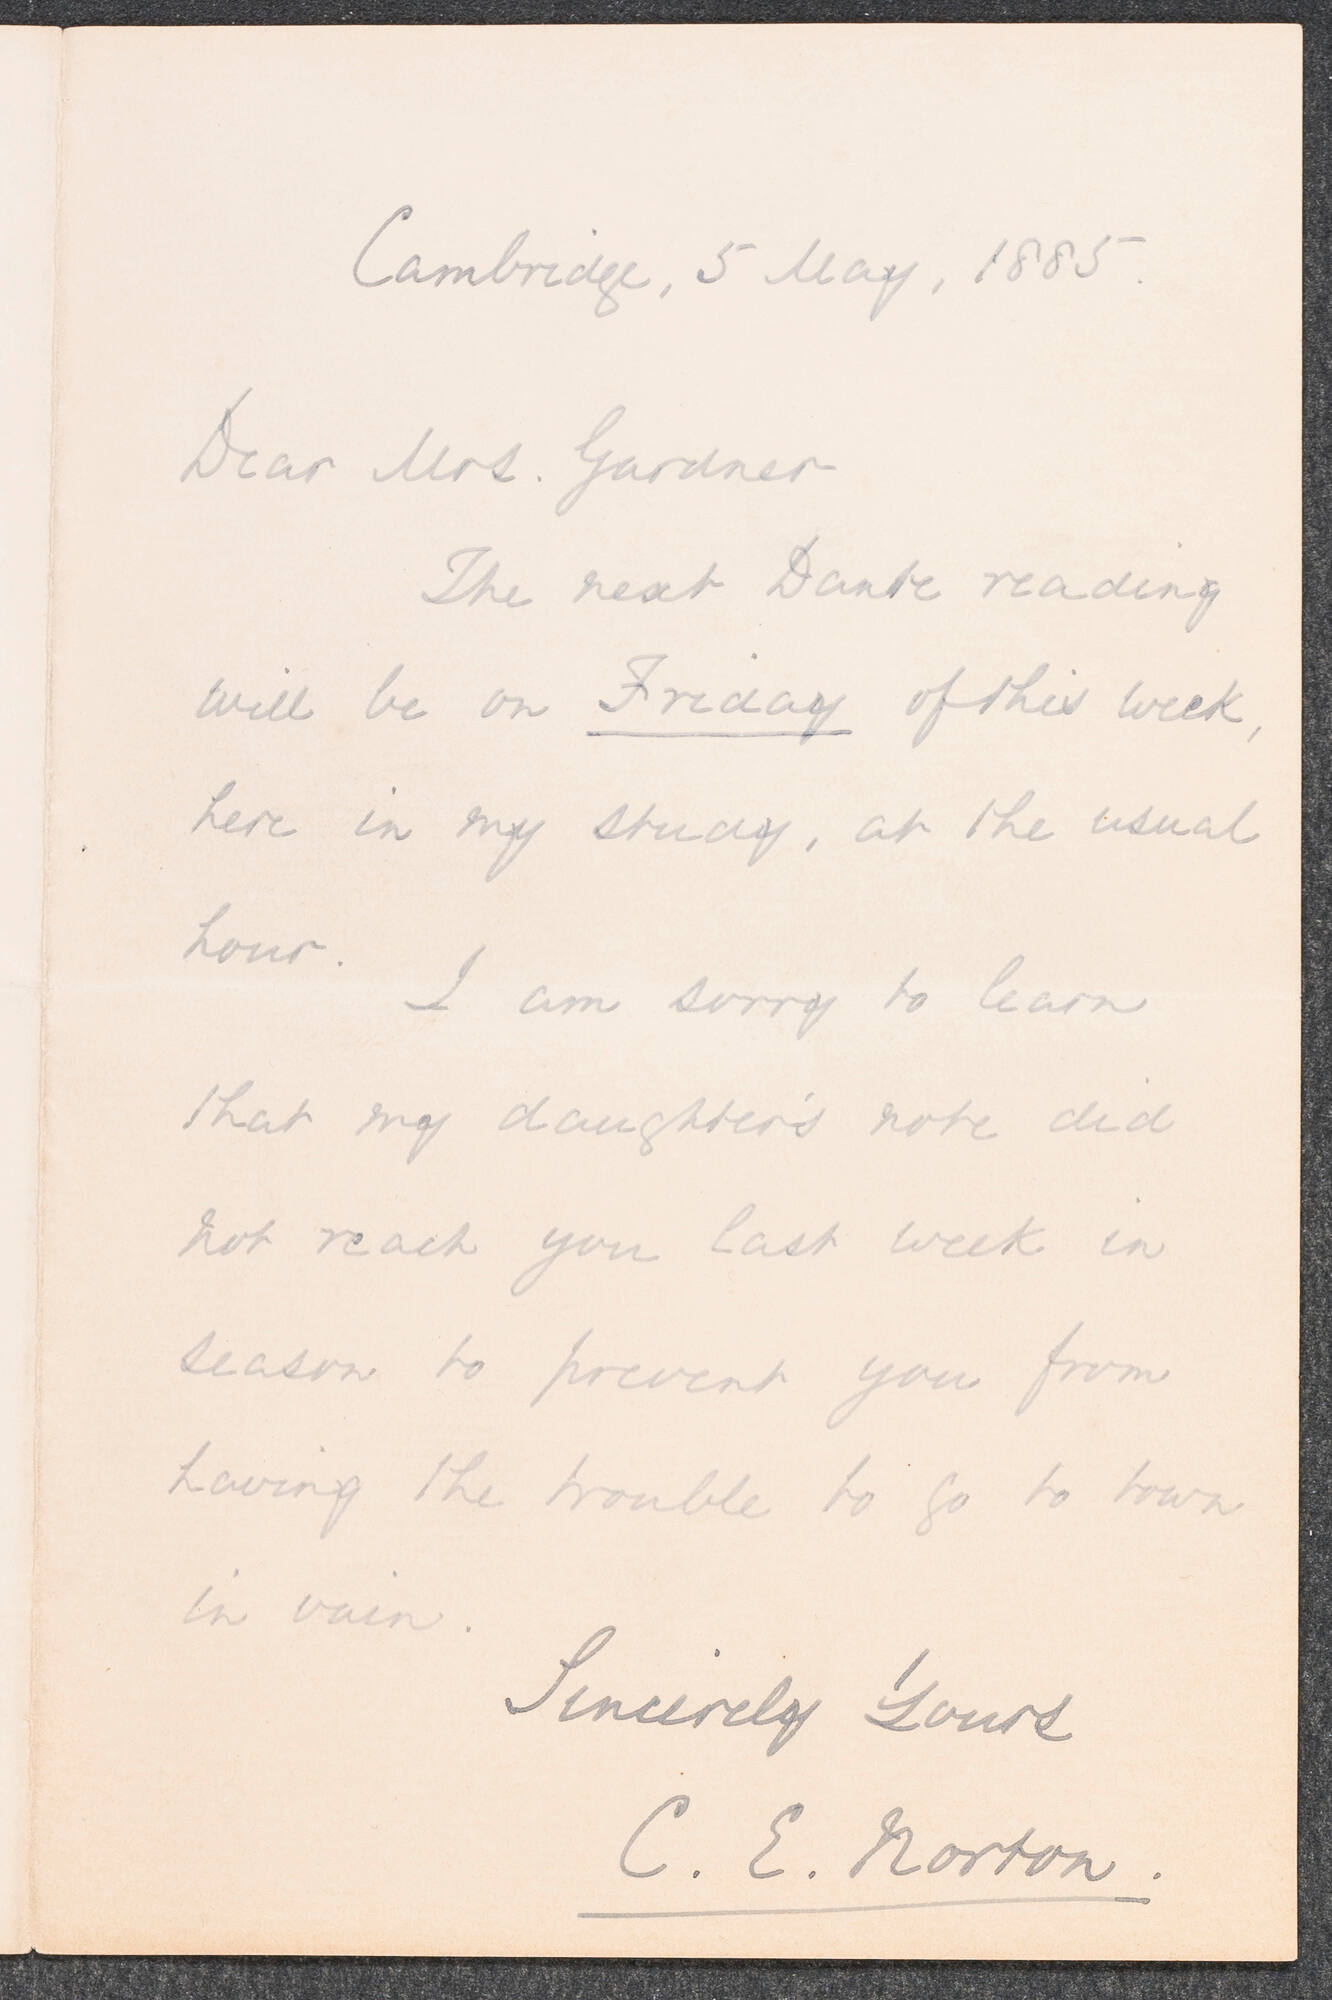 Cambridge, 5 May, 1885.
Dear Mrs. Gardner
The next Dante reading
will be on Friday of this week,
here in my study, at the usual
hour.
I am sorry to learn
that my daughter's note did
not reach you last week in
season to prevent you from
having the trouble to go to town
in vain.
Sincerely Yours
C. E. Norton.